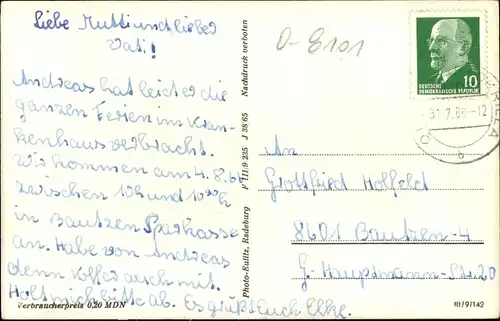 Liebe Mutti und lieber
Vati!
Andreas hat leider die
ganzen Ferien im Kran-
kenhaus verbracht.
Wir kommen am 4.8.66
zwischen 10h und 1030h
in Bautzen Sparkasse
an. Habe von Andreas
denn Koffer auch mit.
Holt mich bitte ab. Es grüßt Euch Elke.
Verbraucherpreis 0,20 MDN
Photo-Eulitz, Radeburg F III/9 235 J 38 65 Nachdruck verboten
D-8101
10
DEUTSCHE
DEMOKRATISCHE REPUBLIK
31.7.66-12
b
An
Gottfried Holfeld
8601 Bautzen-4
G.-Hauptmann-Str. 20
III/9/142